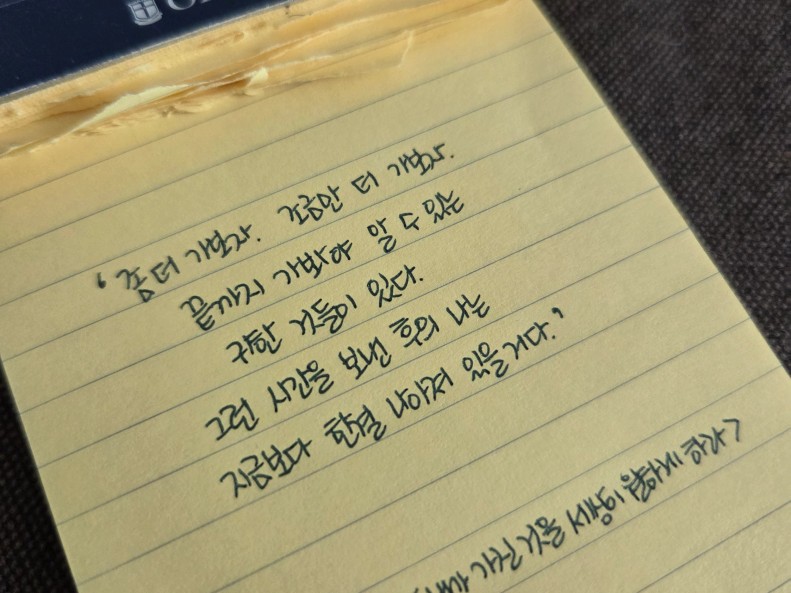 '좀 더 가보자. 조금만 더 가보자.
끝까지 가봐야 알 수 있는
귀한 것들이 있다.
그런 시간을 보낸 후의 나는
지금보다 한결 나아져 있을거다.'
가진 것을 세상이 원하게 하라>